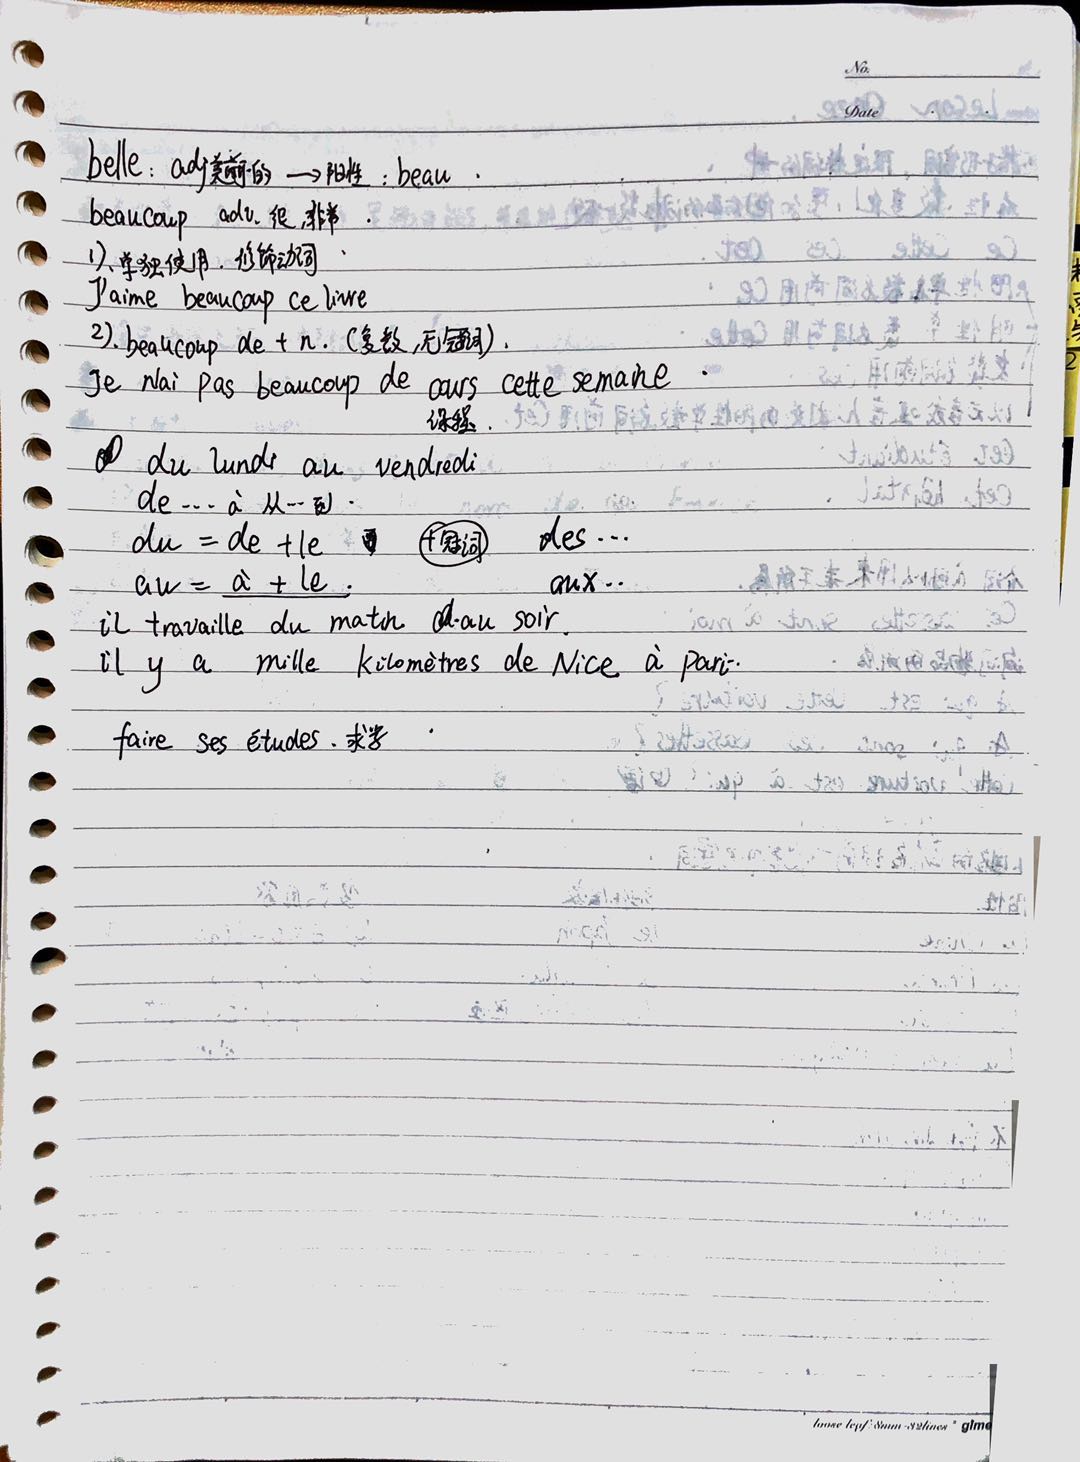 No.
Date
belle: adj 美丽的 → 阳性: beau.
beaucoup adv. 很,非常.
1).单独使用.修饰动词
J'aime beaucoup ce livre
2).beaucoup de + n.(复数,无冠词).
Je n'ai pas beaucoup de cours cette semaine.
课程.
du lundi au vendredi
de ... à 从...到.
du = de + le +冠词 des ...
au = à + le. aux...
il travaille du matin au soir.
il y a mille kilomètres de Nice à Paris.
faire ses études.求学
loose leaf·8mm·32lines